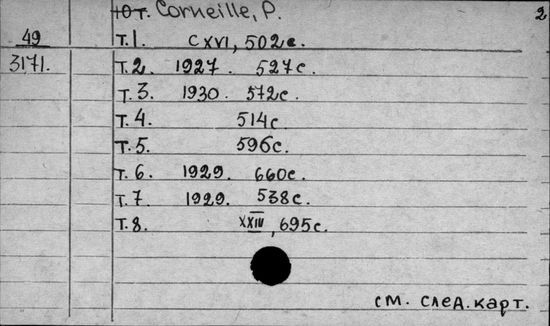 Ют. Corneille, P. 2
49 Т.1. CXVI, 502с.
3171. Т.2. 1927. 527с.
Т.3. 1930. 572с.
Т.4. 514с.
Т.5. 596с.
Т.6. 1929. 660с.
Т.7 1929. 538с.
Т.8. XXIV, 695с.
см. след. карт.